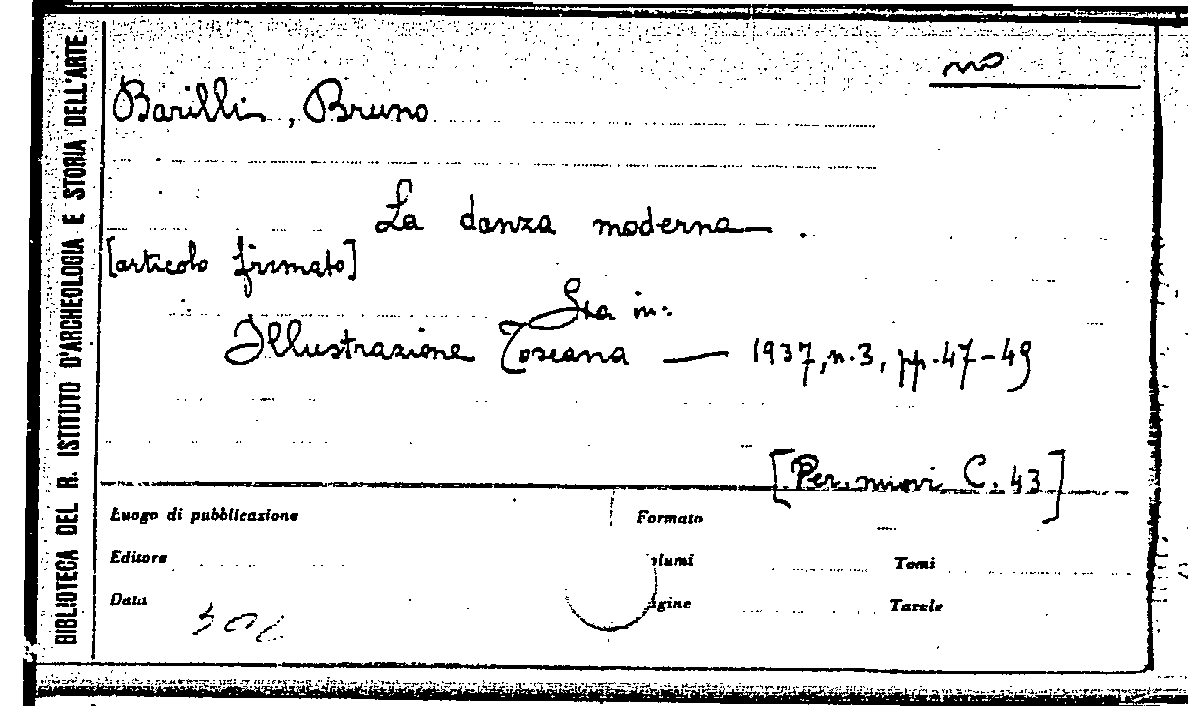 BIBLIOTECA DEL R. ISTITUTO D'ARCHEOLOGIA E STORIA DELL'ARTE
no
Barilli, Bruno
La danza moderna.
[articolo firmato]
Sta in:
Illustrazione Toscana — 1937, n.3, pp.47-49
[Per. nuovi C. 43]
Luogo di pubblicazione Formato
Editore lumi Tomi
Data gine Tavole